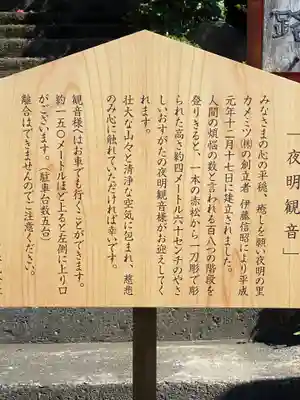 「夜明観音」
みなさまの心の平穏、癒しを願い夜明の里
カメミツ㈱の創立者 伊藤信昭により平成
元年十二月十七日に建立されました。
人間の煩悩の数と言われる百八つの階段を
登りきると、一本の赤松から一刀彫で彫
られた高さ約四メートル六十センチのやさ
しいおすがたの夜明観音様がお迎えしてく
れます。
壮大な山々と清浄な空気に包まれ、慈悲
のみ心に触れていただければ幸いです。
観音様へはお車でも行くことができます。
約一五〇メートルほど上ると左側に上り口
がございます。（駐車台数五台）
離合はできませんのでご注意ください。